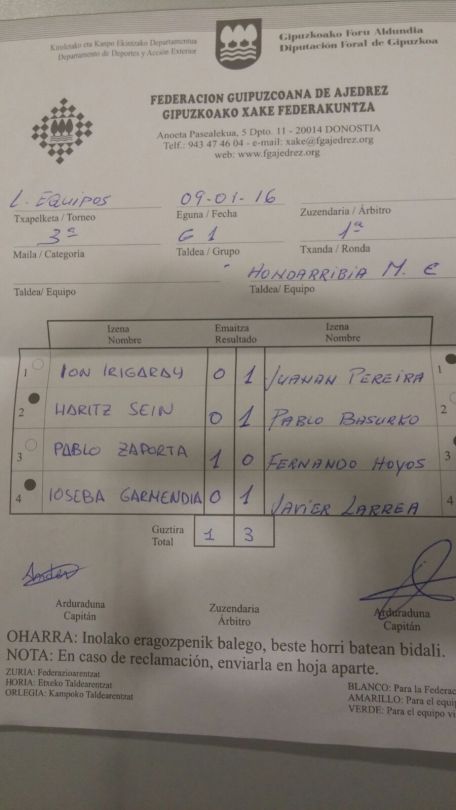 Kiroletako eta Kanpo Ekintzako Departamentua
Departamento de Deportes y Acción Exterior
Gipuzkoako Foru Aldundia
Diputación Foral de Gipuzkoa
FEDERACION GUIPUZCOANA DE AJEDREZ
GIPUZKOAKO XAKE FEDERAKUNTZA
Anoeta Pasealekua, 5 Dpto. 11 - 20014 DONOSTIA
Telf.: 943 47 46 04 - e-mail: xake@fgajedrez.org
web: www.fgajedrez.org
L. EQUIPOS 09-01-16
Txapelketa / Torneo Eguna / Fecha Zuzendaria / Árbitro
3ª G 1 1ª
Maila / Categoria Taldea / Grupo Txanda / Ronda
HONDARRIBIA M. E
Taldea/ Equipo Taldea/ Equipo
Izena Emaitza Izena
Nombre Resultado Nombre
1 ION IRIGARAY 0 1 JUANAN PEREIRA 1
2 HARITZ SEIN 0 1 PABLO BASURKO 2
3 PABLO ZAPORTA 1 0 FERNANDO HOYOS 3
4 IOSEBA GARMENDIA 0 1 JAVIER LARREA 4
Guztira
Total 1 3
Ander
Arduraduna Zuzendaria Arduraduna
Capitán Árbitro Capitán
OHARRA: Inolako eragozpenik balego, beste horri batean bidali.
NOTA: En caso de reclamación, enviarla en hoja aparte.
ZURIA: Federazioarentzat BLANCO: Para la Federac
HORIA: Etxeko Taldearentzat AMARILLO: Para el equip
ORLEGIA: Kampoko Taldearentzat VERDE: Para el equipo vi